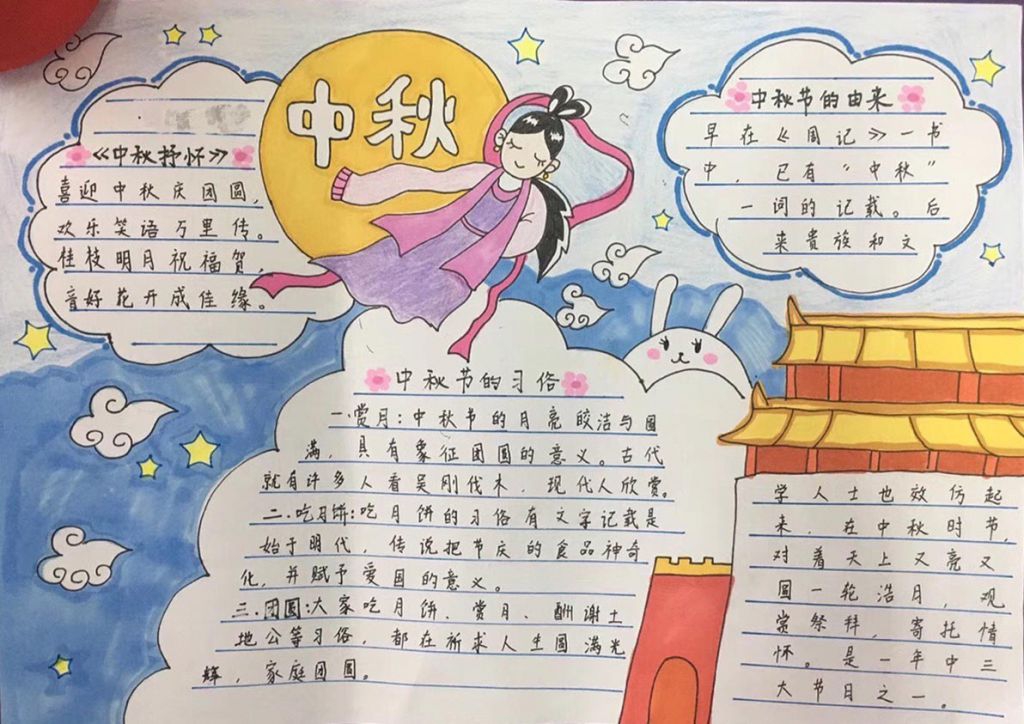 中秋
《中秋抒怀》
喜迎中秋庆团圆,
欢乐笑语万里传。
桂枝明月祝福贺,
音好花开成佳缘。
中秋节的由来
早在《周记》一书
中,已有“中秋”
一词的记载。后
来贵族和文
学人士也效仿起
来,在中秋时节,
对着天上又亮又
圆一轮浩月,观
赏祭拜,寄托情
怀。是一年中三
大节日之一。
中秋节的习俗
一.赏月:中秋节的月亮皎洁与圆
满,具有象征团圆的意义。古代
就有许多人看吴刚伐木,现代人欣赏。
二.吃习饼:吃月饼的习俗有文字记载是
始于明代,传说把节庆的食品神奇
化,并赋予爱国的意义。
三.团圆:大家吃月饼、赏月、酬谢土
地公等习俗,都在祈求人生圆满光
辉,家庭团圆。